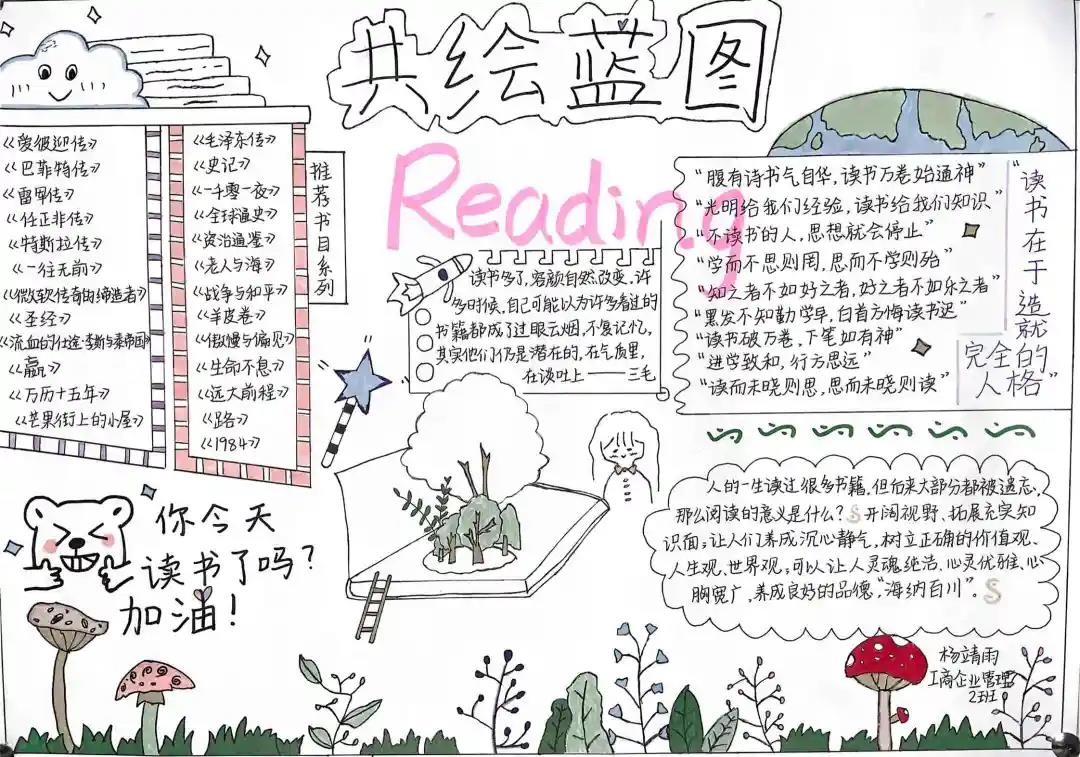 共绘蓝图
Reading
《爱彼迎传》
《巴菲特传》
《雷军传》
《任正非传》
《特斯拉传》
《一往无前》
《微软传奇的缔造者》
《圣经》
《流血的仕途:李斯与秦帝国》
《赢》
《万历十五年》
《芒果街上的小屋》
《毛泽东传》
《史记》
《一千零一夜》
《全球通史》
《资治通鉴》
《老人与海》
《战争与和平》
《羊皮卷》
《傲慢与偏见》
《生命不息》
《远大前程》
《路》
《1984》
推荐书目系列
读书多了,容颜自然改变,许
多时候,自己可能以为许多看过的
书籍都成了过眼云烟,不复记忆,
其实他们仍是潜在的,在气质里,
在谈吐上——三毛
“腹有诗书气自华,读书万卷始通神”
“光明给我们经验,读书给我们知识”
“不读书的人,思想就会停止”
“学而不思则罔,思而不学则殆”
“知之者不如好之者,好之者不如乐之者”
“黑发不知勤学早,白首方悔读书迟”
“读书破万卷,下笔如有神”
“进学致和,行方思远”
“读而未晓则思,思而未晓则读”
“读书在于造就
完全的
人格”
人的一生读过很多书籍,但后来大部分都被遗忘,
那么阅读的意义是什么?S开阔视野、拓展充实知
识面;让人们养成沉心静气,树立正确的价值观、
人生观、世界观;可以让人灵魂纯洁、心灵优雅、心
胸宽广,养成良好的品德,“海纳百川”。S
你今天
读书了吗?
加油!
杨靖雨
工商企业管理
2班